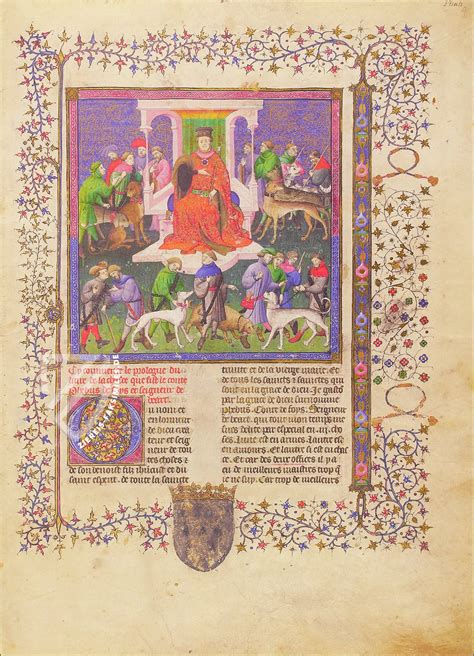 Cy commence le prologue du
livre de la chasse que fist le conte
phebus de foys et seigneur de
bearn.
u nom et
en lonneur
de dieu crea
teur et seig
neur de tou
tes choses &
de son benoist filz ihucrist et du
saint esperit. de toute la saincte
trinite et de la vierge marie. Et
de tous les saincts et sainctes
qui sont en la grace de dieu. Je gaston
par la grace de dieu surnomme
phebus. Conte de foys. Seigneur
de bearn. qui tout mon temps me
suis delite par especial en .iij. cho
ses. Lune est en armes. lautre est
en amours. Et lautre si est en chasse
Et car des deux offices il y a
eu de meilleurs maistres trop que
ie ne suy. Car trop de meilleurs